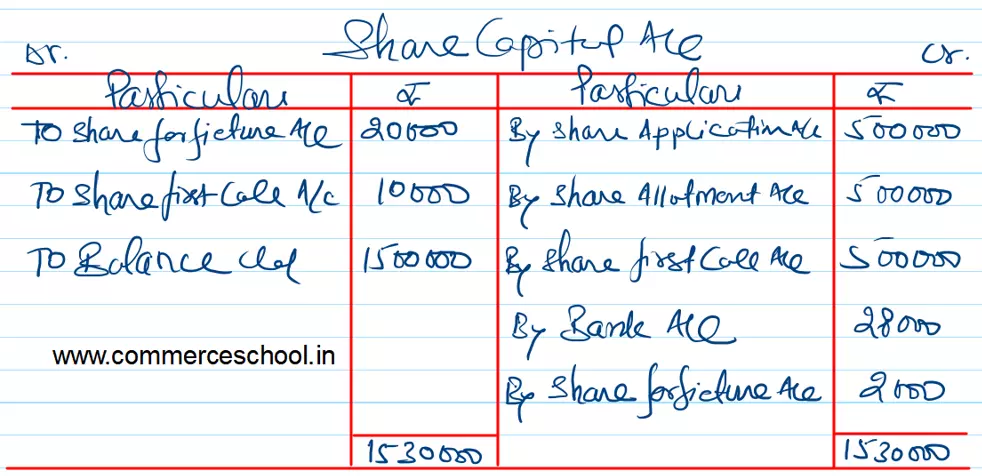 Share Capital A/c
Dr. Cr.
Particulars ₹ Particulars ₹
To Share forficture A/c 20000 By Share Application A/c 500000
To Share first Call A/c 10000 By Share Allotment A/c 500000
To Balance c/d 1500000 By Share first Call A/c 500000
By Bank A/c 28000
www.commerceschool.in
By Share forficture A/c 2000
1530000 1530000